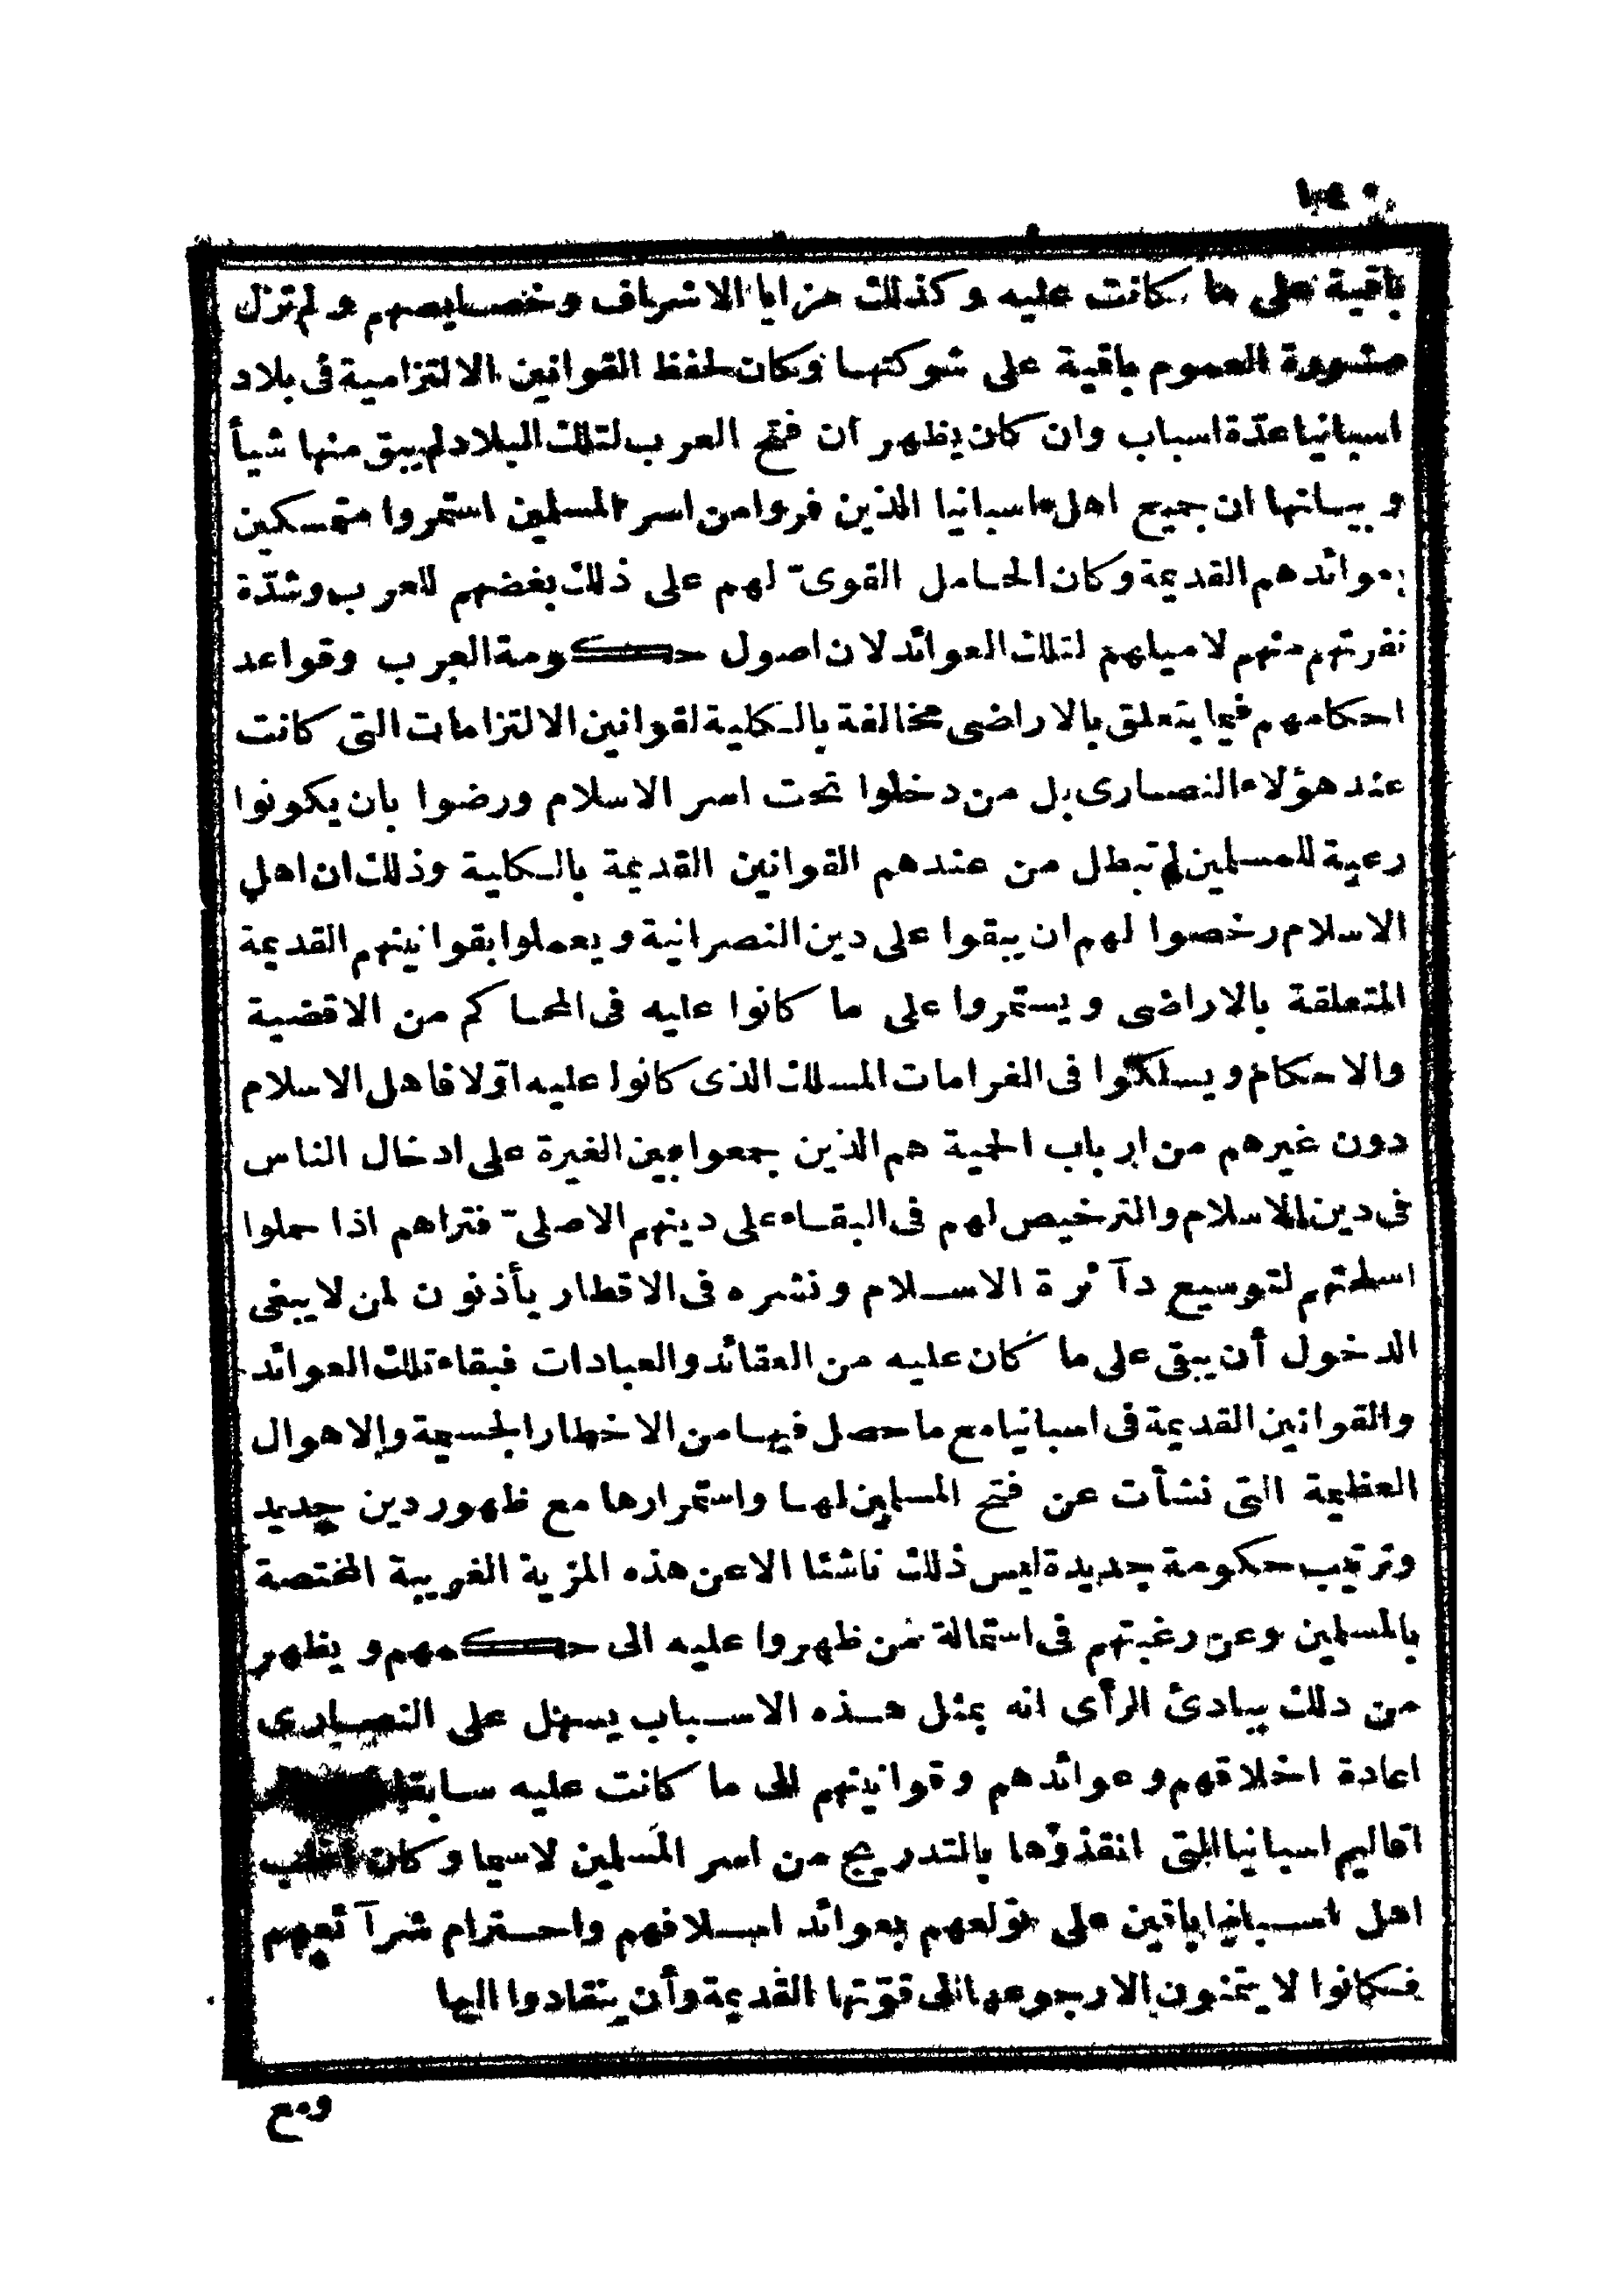 ١٤٠
باقية على ما كانت عليه وكذلك مزايا الاشراف وخصايصهم ولم تزل
مشورة العموم باقية على شوكتها وكان لحفظ القوانين الالتزامية فى بلاد
اسبانيا عدّة اسباب وان كان يظهر ان فتح العرب لتلك البلاد لم يبق منها شيأ
وبيانها ان جميع اهل اسبانيا الذين فروا من اسر المسلمين استمروا متمسكين
بعوائدهم القديمة وكان الحامل القوىّ لهم على ذلك بغضهم للعرب وشدّة
نفرتهم منهم لا ميلهم لتلك العوائد لان اصول حكومة العرب وقواعد
احكامهم فيما يتعلق بالاراضى مخالفة بالكلية لقوانين الالتزامات التى كانت
عند هؤلاء النصارى بل من دخلوا تحت اسر الاسلام ورضوا بان يكونوا
رعية للمسلمين لم تبطل من عندهم القوانين القديمة بالكلية وذلك ان اهل
الاسلام رخصوا لهم ان يبقوا على دين النصرانية ويعملوا بقوانينهم القديمة
المتعلقة بالاراضى ويستمروا على ما كانوا عليه فى المحاكم من الاقضية
والاحكام ويسلكوا فى الغرامات المسلك الذى كانوا عليه اوّلا فاهل الاسلام
دون غيرهم من ارباب الحمية هم الذين جمعوا بين الغيرة على ادخال الناس
فى دين الاسلام والترخيص لهم فى البقاء على دينهم الاصلىّ فتراهم اذا حملوا
اسلحتهم لتوسيع دآئرة الاسلام ونشره فى الاقطار يأذنون لمن لا يبغى
الدخول أن يبقى على ما كان عليه من العقائد والعبادات فبقاء تلك العوائد
والقوانين القديمة فى اسبانيا مع ما حصل فيها من الاخطار الجسيمة والاهوال
العظيمة التى نشأت عن فتح المسلمين لها واستمرارها مع ظهور دين جديد
وترتيب حكومة جديدة ليس ذلك ناشئا الا عن هذه المزية الغريبة المختصة
بالمسلمين وعن رغبتهم فى استمالة من ظهروا عليه الى حكمهم ويظهر
من ذلك ببادئ الرأى انه بمثل هذه الاسباب يسهل على النصارى
اعادة اخلاقهم وعوائدهم وقوانينهم الى ما كانت عليه سابقا
اقاليم اسبانيا التى انقذوها بالتدريج من اسر المسلمين لا سيما وكان اغلب
اهل اسبانيا باقين على تولعهم بعوائد اسلافهم واحترام شرآئعهم
فكانوا لا يتمنون الا رجوعها الى قوّتها القديمة وأن ينقادوا اليها
ومع